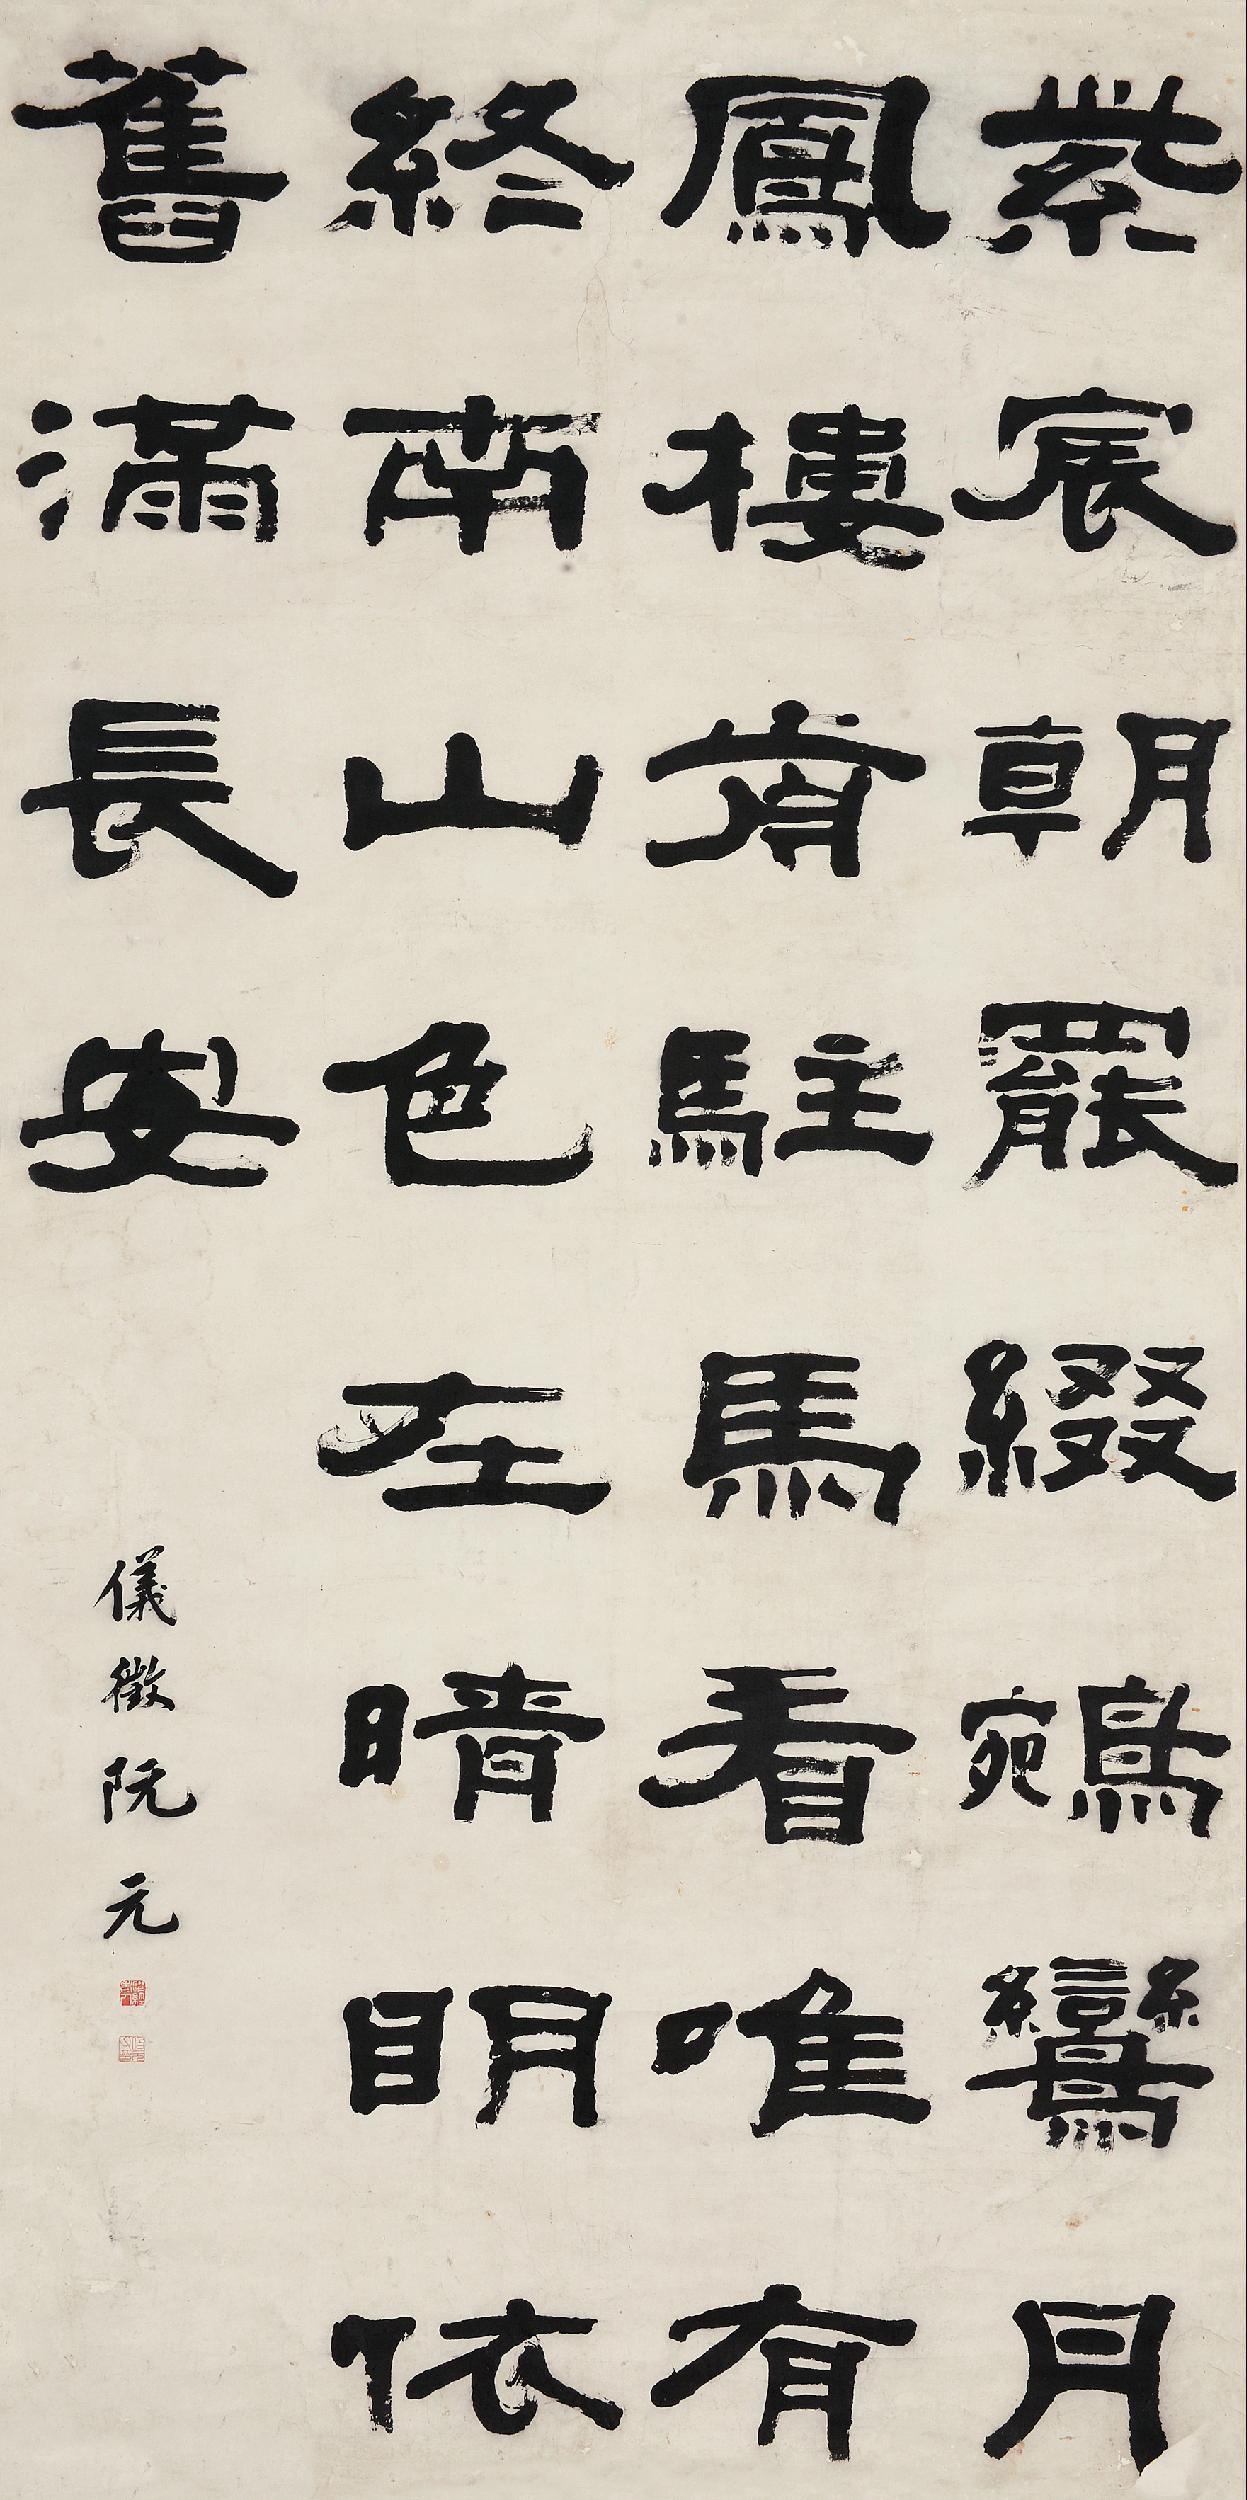 紫宸朝罷綴鵷鸞月
鳳樓前駐馬看唯有
終南山色在晴明依
舊滿長安
儀徵阮元